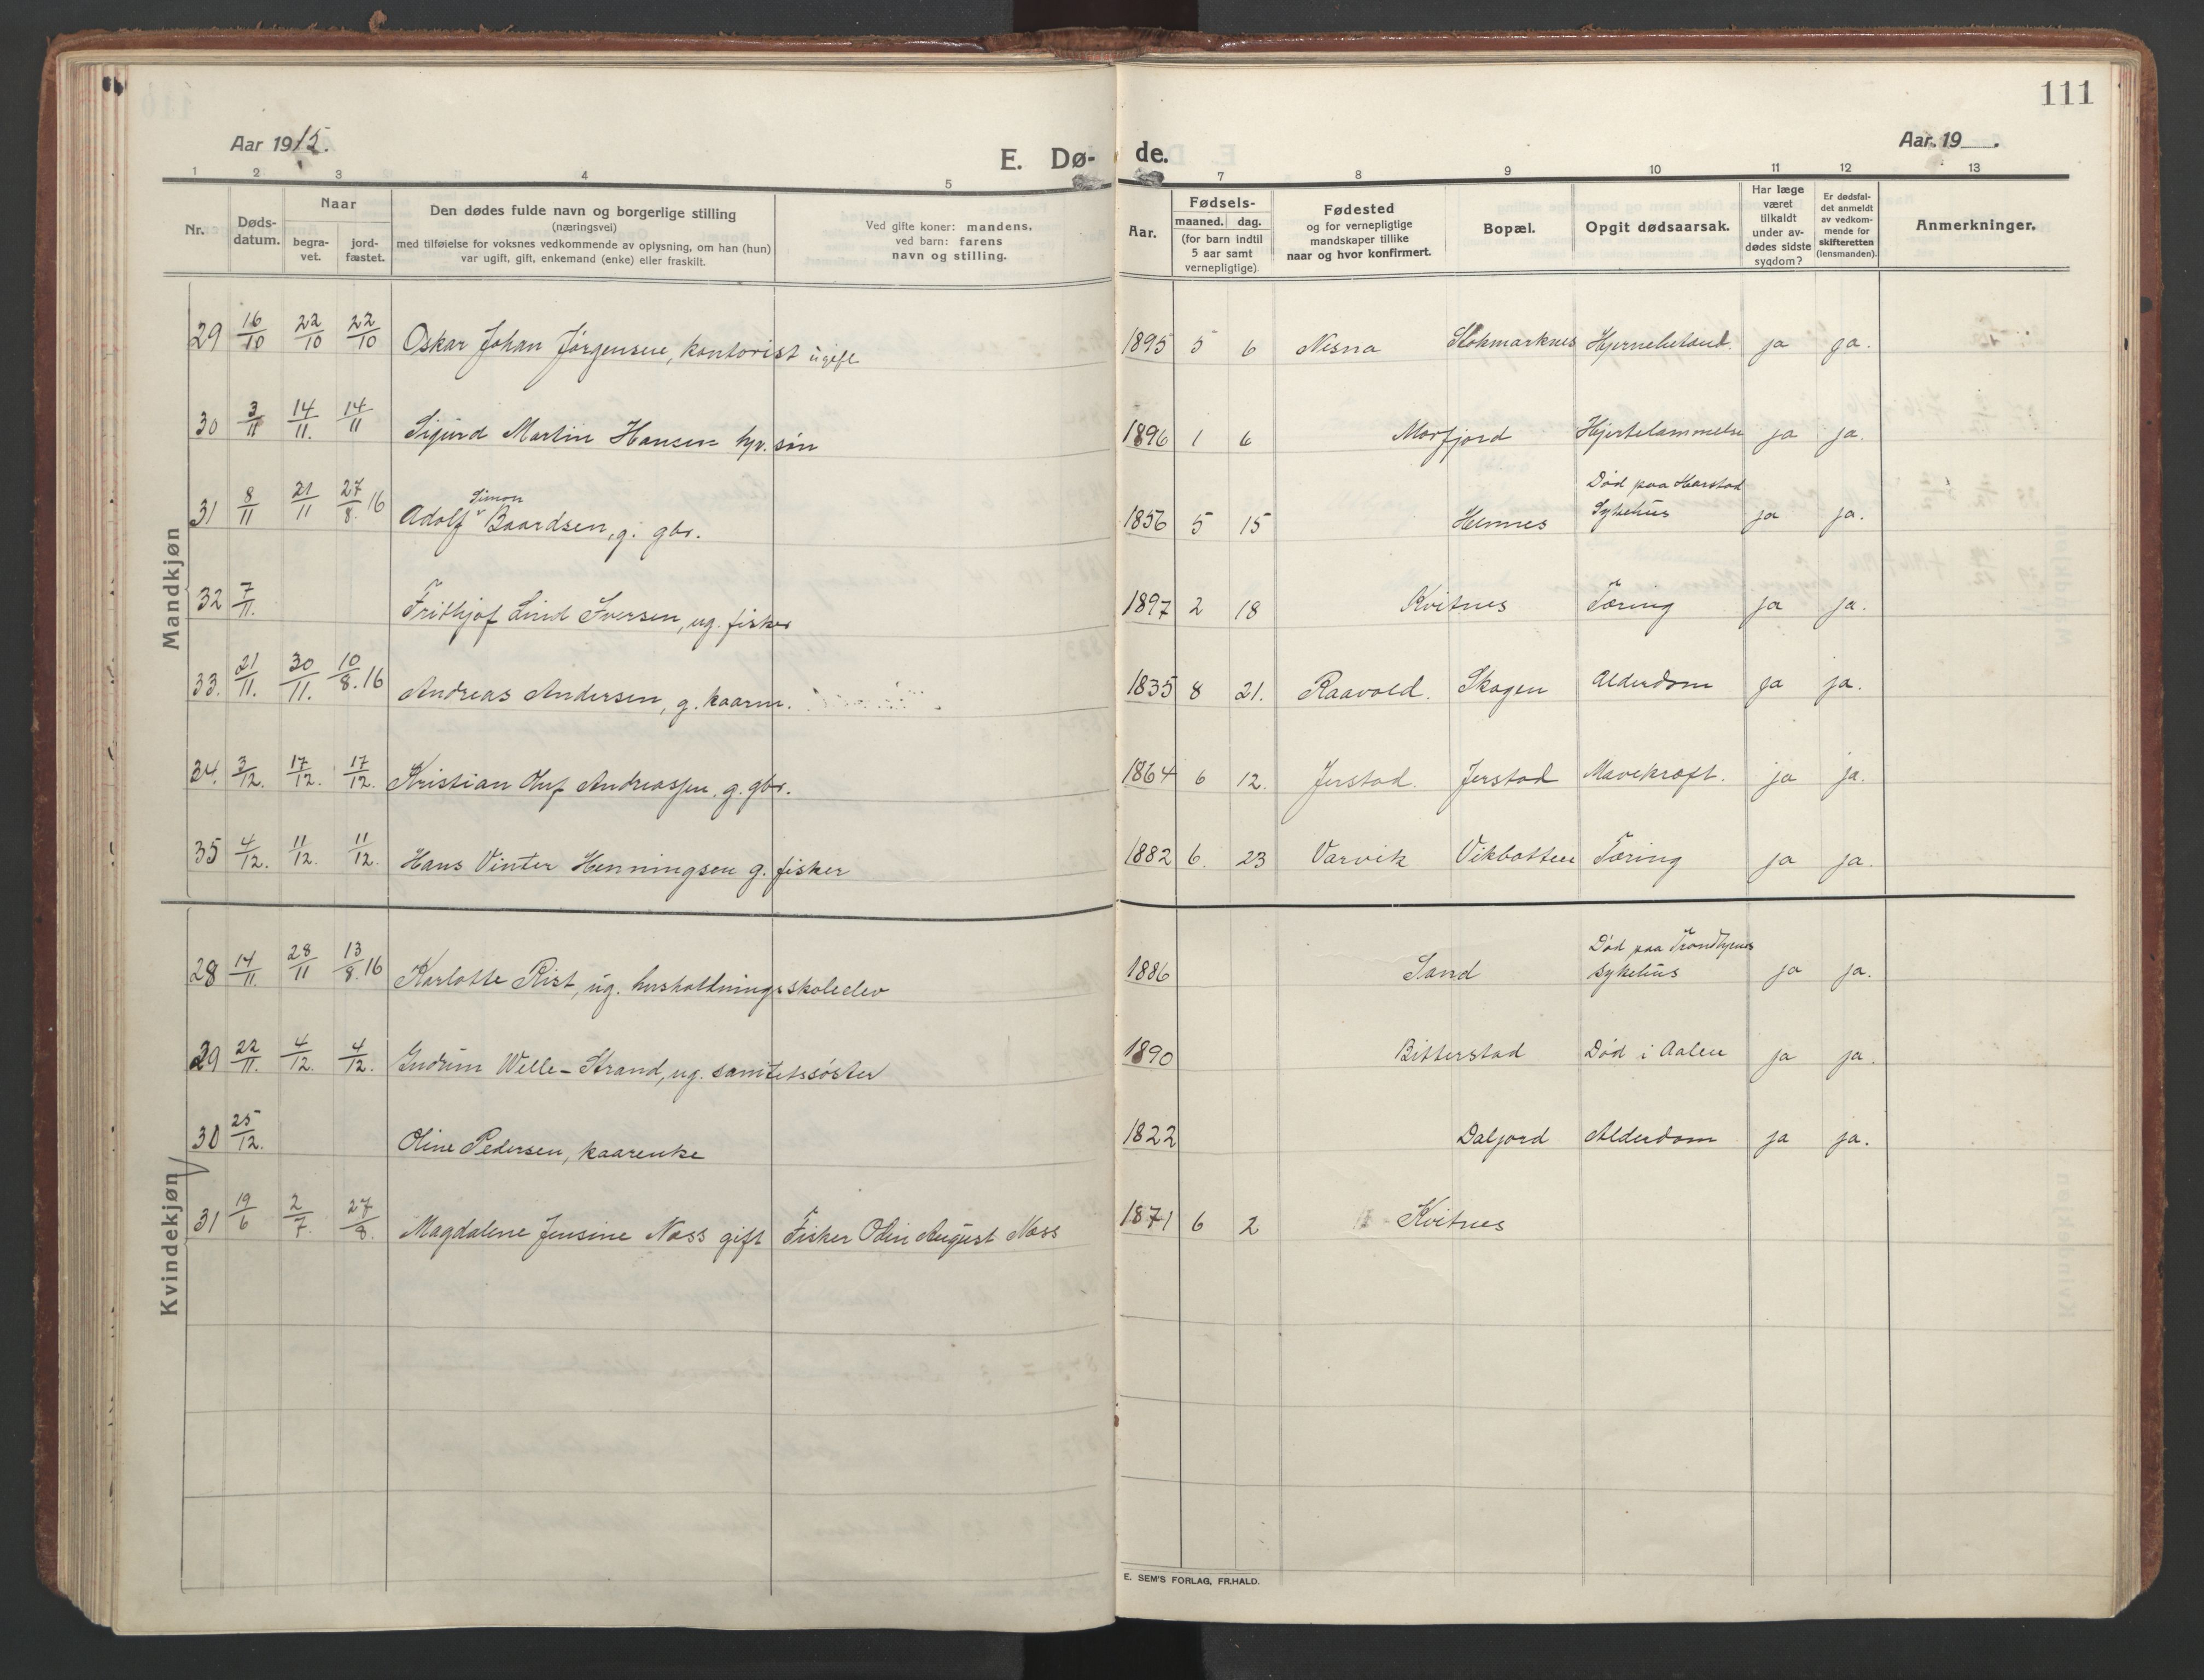 111
Aar 1915.
E. Dø- de.
Aar. 19 .
1 2 3 4 5 7 8 9 10 11 12 13
Nr.
Døds-datum.
Naar
begra-vet.
jord-fæstet.
Den dødes fulde navn og borgerlige stilling
(næringsvei)
med tilføielse for voksnes vedkommende av oplysning, om han (hun)
var ugift, gift, enkemand (enke) eller fraskilt.
Ved gifte koner: mandens.
ved barn: farens
navn og stilling.
Aar.
Fødsels-
maaned. dag.
(for barn indtil
5 aar samt
vernepligtige)
Fødested
og for vernepligtige
mandskaper tillike
naar og hvor konfirmert.
Bopæl.
Opgit dødsaarsak.
Har læge
været
tilkaldt
under av-
dødes sidste
sygdom?
Er dødsfal-
det anmeldt
av vedkom-
mende for
skifteretten
(lensmanden).
Anmerkninger.
Mandkjøn
29 16/10 22/10 22/10 Oskar Johan Jørgensen, kontorist ugift 1895 5 6 Nesna Stokmarknes ja ja.
30 3/11 14/11. 14/11 Sigurd Martin Hansen hjv. søn 1896 1 6 Morfjord Hjertelammelse ja ja.
31 8/11 21/11 27/8. 16 Adolf Simon Baardsen, g. gbr. 1856 5 15 Hennes Død paa Harstad
Sykehus ja ja.
32 7/11. Frithjof Lind Iversen, ug. fisker 1897 2 18 Kvitnes Tæring ja ja.
33. 21/11. 30/11. 10/8. 16 Andreas Andersen, g. kaarm. 1835 8 21. Raavold. Skogen Alderdom ja ja.
34. 3/12. 17/12. 17/12. Kristian Oluf Andreassen, g. gbr. 1864 6 12. Jerstad. Jerstad Mavekræft. ja ja.
35 4/12. 11/12. 11/12. Hans Vinter Henningsen g. fisker 1882 6. 23 Varvik Vikbotten Tæring ja ja.
Kvindekjøn
28 14/11. 28/11 13/8. 16 Karlotte Rist, ug. husholdningsskoleelev 1886 Sand Død paa Trondhjems
sykehus ja ja.
29 22/11. 4/12. 4/12. Gudrun Welle-Strand, ug. sanitetssøster 1890 Bitterstad Død i Aalen ja ja.
30 25/12. Oline Pedersen, kaarenke 1822 Daljord Alderdom ja ja.
31 19/6 2/7. 27/8. Magdalene Jensine Næss gift Fisker Odin August Næss 1871 6 2 Kvitnes
E. SEM'S FORLAG, FR.HALD.